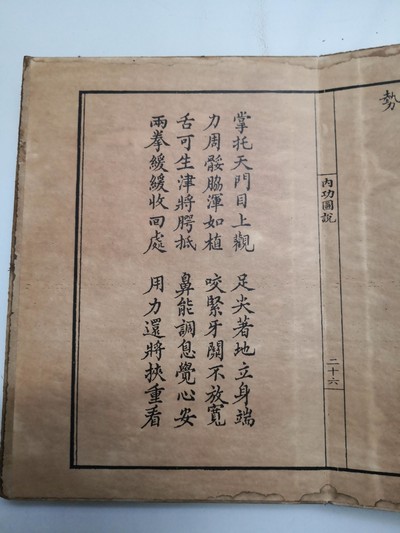 勢
內功圖說
二十六
掌托天門目上觀　足尖著地立身端
力周骽脇渾如植　咬緊牙關不放寬
舌可生津將腭抵　鼻能調息覺心安
兩拳緩緩收回處　用力還將挾重看